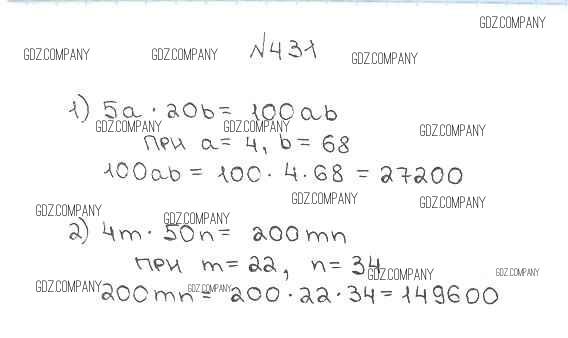 GDZ.COMPANY
GDZ.COMPANY GDZ.COMPANY №431 GDZ.COMPANY
1) 5a · 20b = 100ab
GDZ.COMPANY GDZ.COMPANY GDZ.COMPANY
при a = 4, b = 68
100ab = 100 · 4 · 68 = 27200
GDZ.COMPANY GDZ.COMPANY
GDZ.COMPANY GDZ.COMPANY
2) 4m · 50n = 200mn
при m = 22, n = 34
GDZ.COMPANY GDZ.COMPANY
GDZ.COMPANY GDZ.COMPANY
200mn = 200 · 22 · 34 = 149600